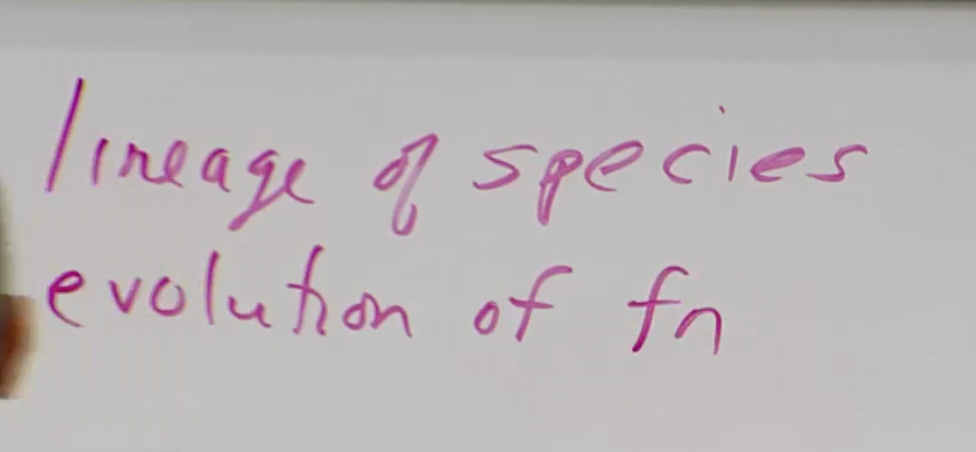 lineage of species
evolution of fn